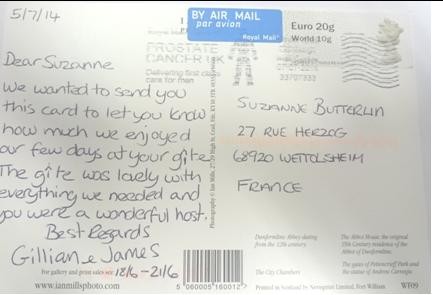 5/7/14
Dear Suzanne
We wanted to send you
this card to let you know
how much we enjoyed
our few days at your gîte.
The gîte was lovely with
everything we needed and
you were a wonderful host.
Best Regards
Gillian & James
18/6 - 21/6
For gallery and print sales see
www.ianmillsphoto.com
BY AIR MAIL
par avion
Royal Mail
PROSTATE
CANCER UK
Delivering first class
care for men
Euro 20g
World 10g
SUZANNE BUTTERLIN
27 RUE HERZOG
68920 WETTOLSHEIM
FRANCE
Dunfermline Abbey dating
from the 12th century.
The Abbot House, the original
15th Century residence of the
Abbot of Dunfermline.
The City Chambers
The gates of Pittencrieff Park and
the statue of Andrew Carnegie.
5 060005 160012
Printed in Scotland by Nevisprint Limited, Fort William
WF09